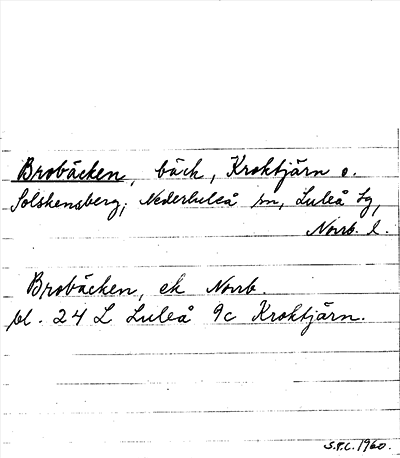 Brobäcken, bäck, Kroktjärn o.
Solskensberg, Nederluleå sn, Luleå tg,
Norrb. l.
Brobäcken, ek Norrb.
bl. 24 L Luleå 9c Kroktjärn.
S.P.L. 1960.